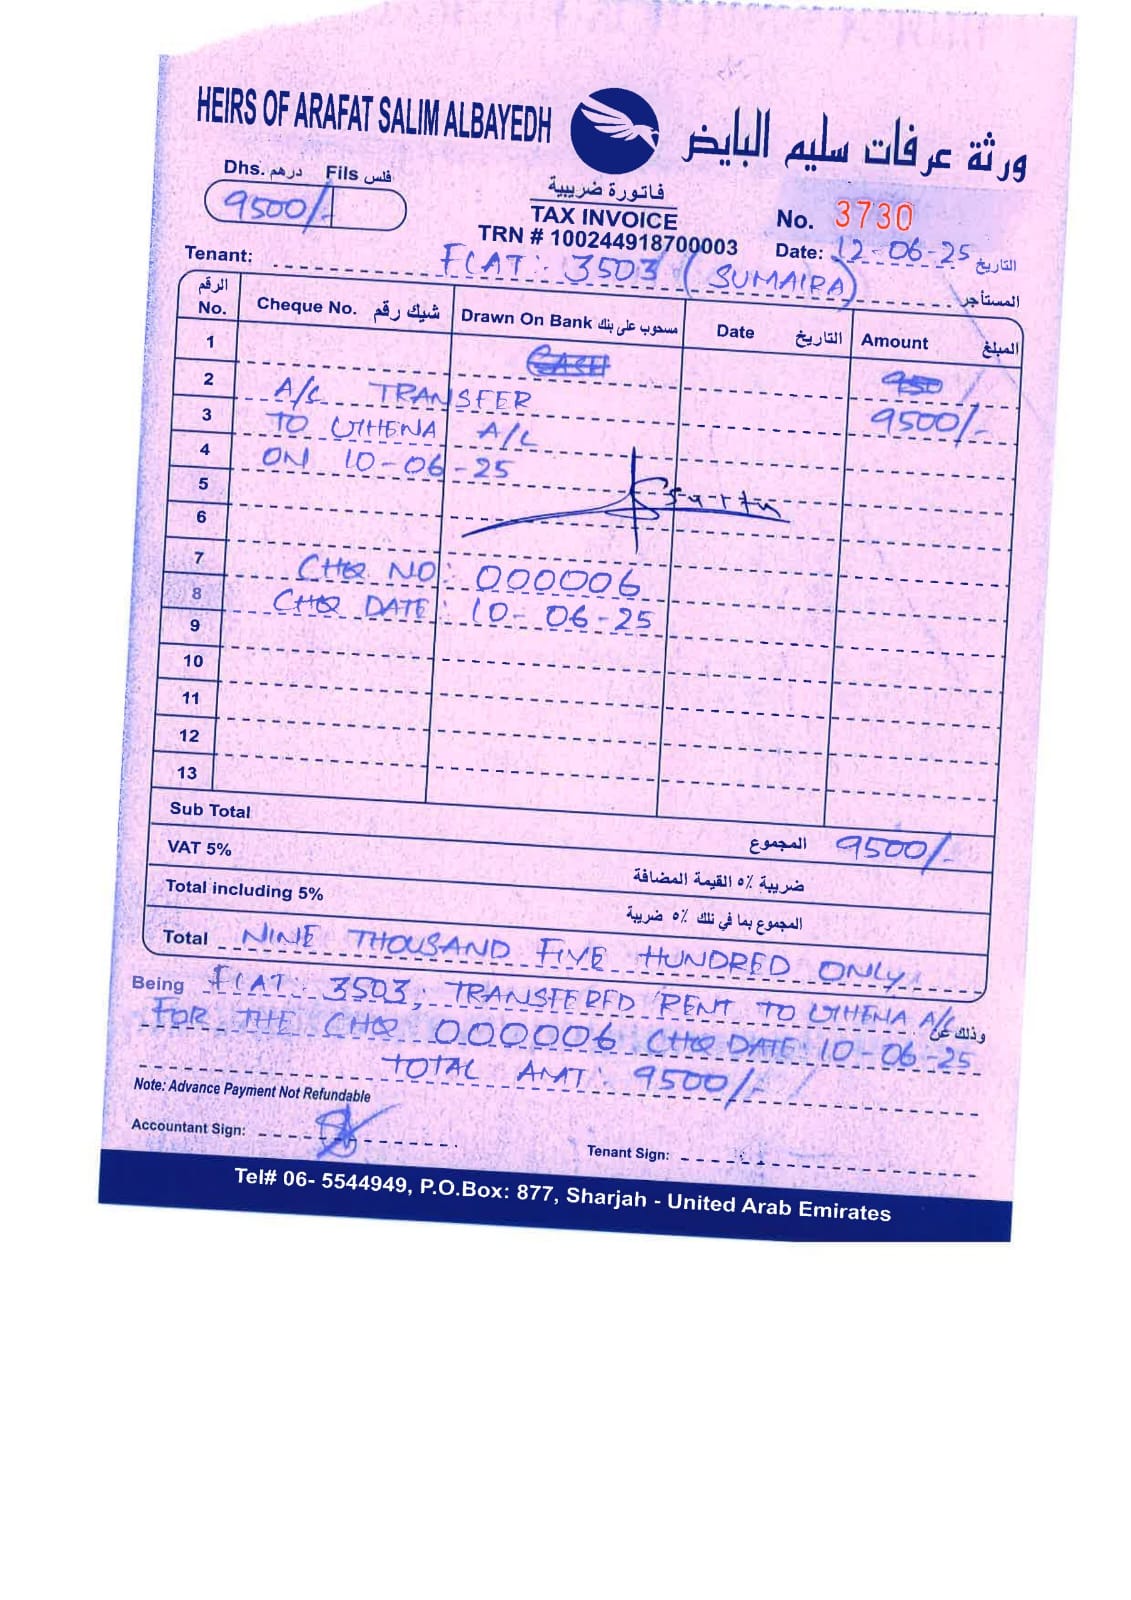 HEIRS OF ARAFAT SALIM ALBAYEDH ورثة عرفات سليم البايض
Dhs. درهم Fils فلس
9500/-
فاتورة ضريبية
TAX INVOICE
TRN # 100244918700003
No. 3730
Date: 12-06-25 التاريخ
Tenant: FLAT: 3503 (SUMAIRA) المستأجر
الرقم No. Cheque No. شيك رقم Drawn On Bank مسحوب على بنك Date التاريخ Amount المبلغ
1 CASH 950
2 A/C TRANSFER 9500/-
3 TO UTHENA A/C
4 ON 10-06-25
5
6
7 CHQ NO: 000006
8 CHQ DATE: 10-06-25
9
10
11
12
13
Sub Total المجموع 9500/-
VAT 5% ضريبة ٥٪ القيمة المضافة
Total including 5% المجموع بما في ذلك ٥٪ ضريبة
Total NINE THOUSAND FIVE HUNDRED ONLY
Being FLAT: 3503, TRANSFERED RENT TO UTHENA A/C وذلك عن
FOR THE CHQ 000006 CHQ DATE: 10-06-25
TOTAL AMT: 9500/-
Note: Advance Payment Not Refundable
Accountant Sign:
Tenant Sign:
Tel# 06- 5544949, P.O.Box: 877, Sharjah - United Arab Emirates